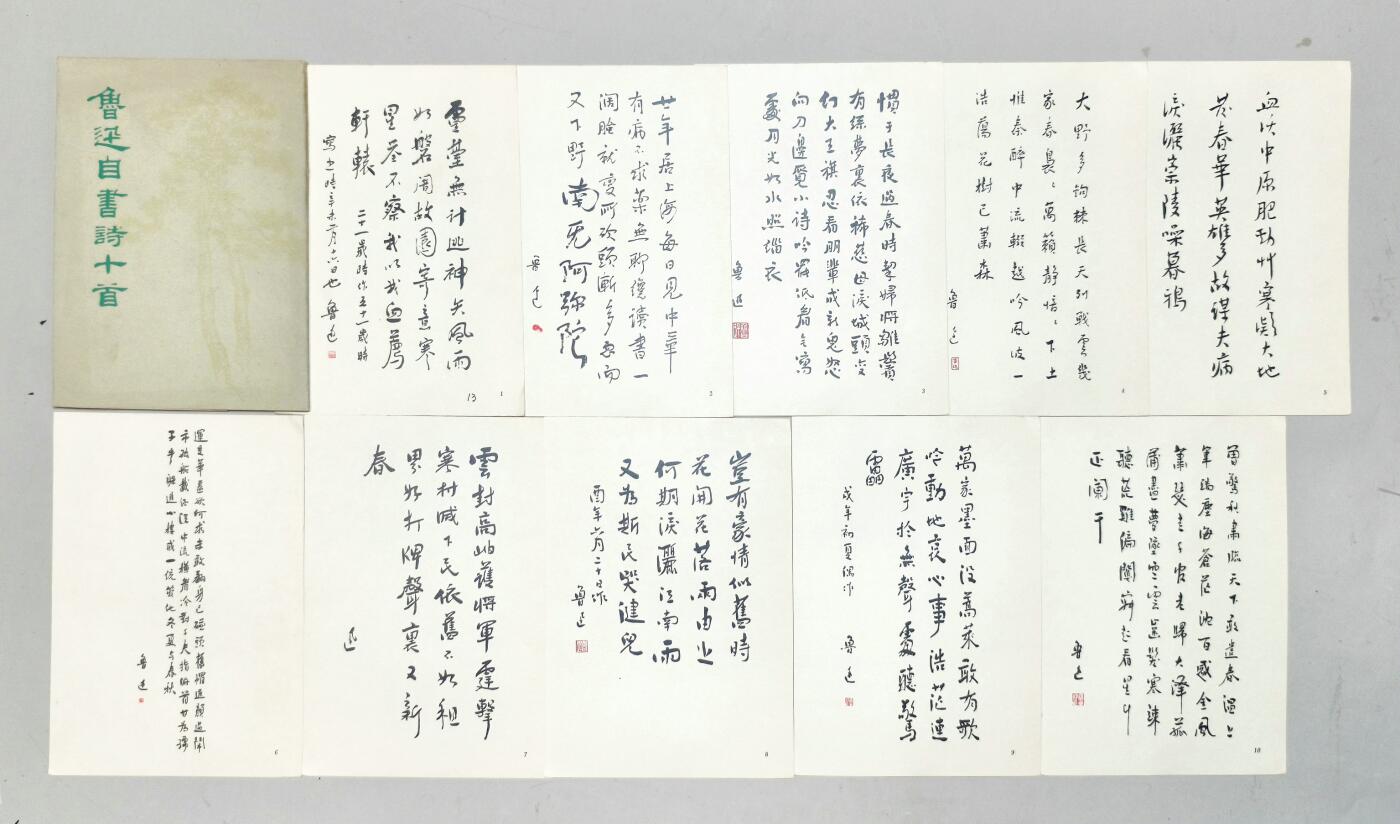 魯迅自書詩十首
靈臺無計逃神矢風雨
如磐闇故園寄意寒
星荃不察我以我血薦
軒轅 二十一歲時作五十一歲時
寫之時辛未二月十六日也 魯迅
13
1
廿年居上海每日見中華
有病不求藥無聊纔讀書一
闊臉就變所砍頭漸多忽而
又下野南无阿弥陀
魯迅
2
慣于長夜過春時挈婦將雛鬢
有絲夢裏依稀慈母淚城頭變
幻大王旗忍看朋輩成新鬼怒
向刀邊覓小詩吟罷低眉無寫
處月光如水照緇衣
魯迅
3
大野多鉤棘長天列戰雲幾
家春裊〻萬籟靜愔〻下土
惟秦醉中流輟越吟風波一
浩蕩花樹已蕭森
魯迅
4
血沃中原肥勁艸寒凝大地
發春華英雄多故謀夫病
淚灑崇陵噪暮鴉
5
運交華蓋欲何求未敢翻身已碰頭舊帽遮顏過鬧
市破船載酒泛中流橫眉冷對千夫指俯首甘為孺
子牛躲進小樓成一統管他冬夏與春秋
魯迅
6
雲封高岫護將軍霆擊
寒村滅下民依舊不如租
界好打牌聲裏又新
春
迅
7
豈有豪情似舊時
花開花落兩由之
何期淚灑江南雨
又為斯民哭健兒
酉年六月二十日作
魯迅
8
萬家墨面沒蒿萊敢有歌
吟動地哀心事浩茫連
廣宇於無聲處聽驚
雷
戌年初夏偶作 魯迅
9
曾驚秋肅臨天下敢遣春溫上
筆端塵海蒼茫沈百感金風
蕭瑟走千官老歸大澤菰
蒲盡夢墜空雲齒髮寒竦
聽荒雞偏闃寂起看星斗
正闌干
魯迅
10